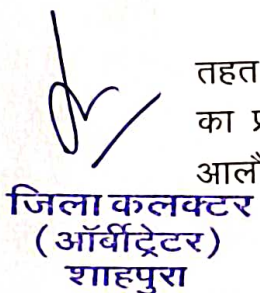 तहत
का प्र
आलौ
जिला कलक्टर
(ऑर्बीट्रेटर)
शाहपुरा